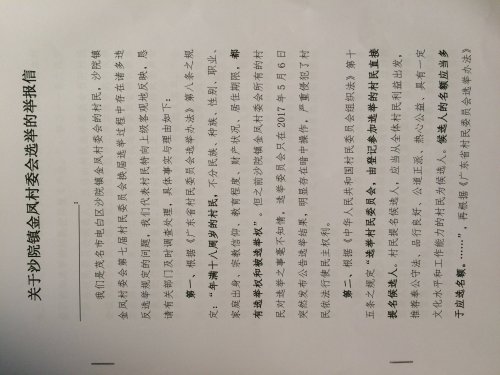 关于沙院镇金凤村委会选举的举报信
我们是茂名市电白区沙院镇金凤村委会的村民，沙院镇
金凤村委会第七届村民委员会换届选举过程中存在诸多违
反选举规定的问题，我们代表村民特向上级客观地反映，恳
请有关部门及时调查处理，具体事实与理由如下：
第一、根据《广东省村民委员会选举办法》第八条之规
定：“年满十八周岁的村民，不分民族、种族、性别、职业、
家庭出身、宗教信仰、教育程度、财产状况、居住期限，都
有选举权和被选举权”。但之前沙院镇金凤村委会所有的村
民对选举之事毫不知情，选举委员会只在2017年5月6日
突然发布公告选举结果，明显存在暗中操作，严重侵犯了村
民依法行使民主权利。
第二、根据《中华人民共和国村民委员会组织法》第十
五条之规定“选举村民委员会，由登记参加选举的村民直接
提名候选人。村民提名候选人，应当从全体村民利益出发，
推荐奉公守法、品行良好、公道正派、热心公益、具有一定
文化水平和工作能力的村民为候选人。候选人的名额应当多
于应选名额。……”，再根据《广东省村民委员会选举办法》